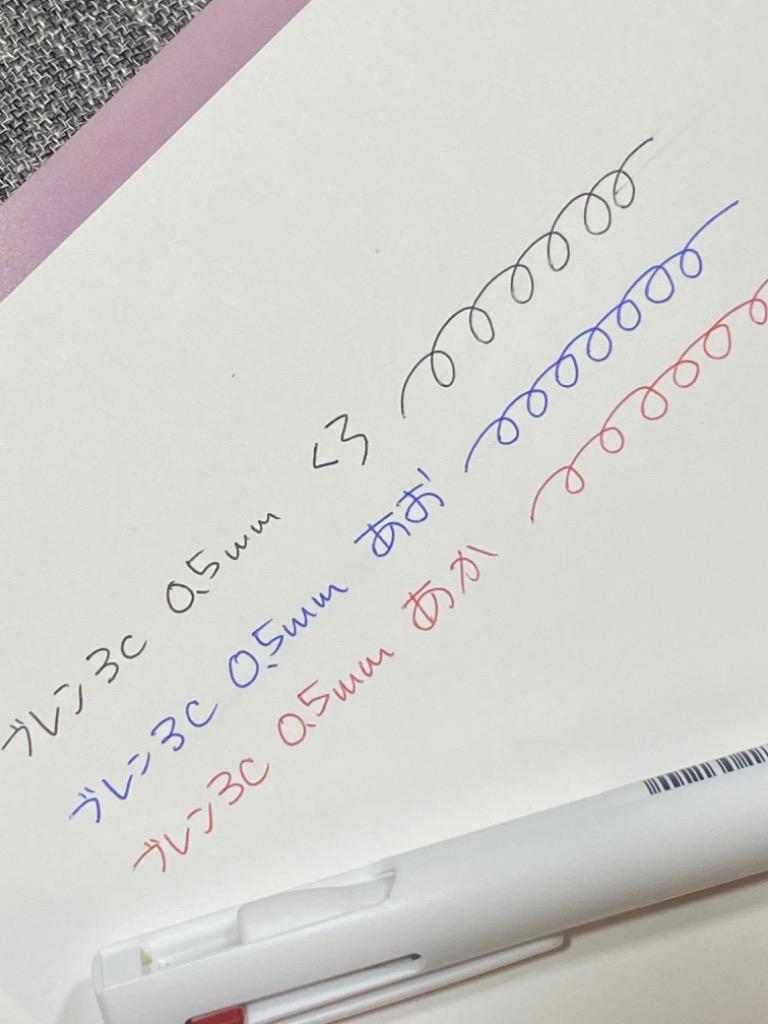 ブレン3C 0.5mm くろ
ブレン3C 0.5mm あお
ブレン3C 0.5mm あか